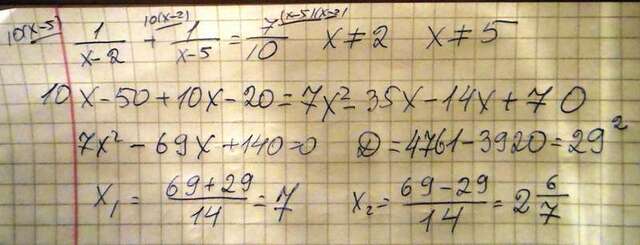 10(x-5) 1/(x-2) + 10(x-2) 1/(x-5) = 7/10 (x-5)(x-2) x ≠ 2 x ≠ 5
10x-50+10x-20=7x²-35x-14x+70
7x²-69x+140=0 D=4761-3920=29²
x₁ = (69+29)/14 = 7 x₂ = (69-29)/14 = 2 6/7